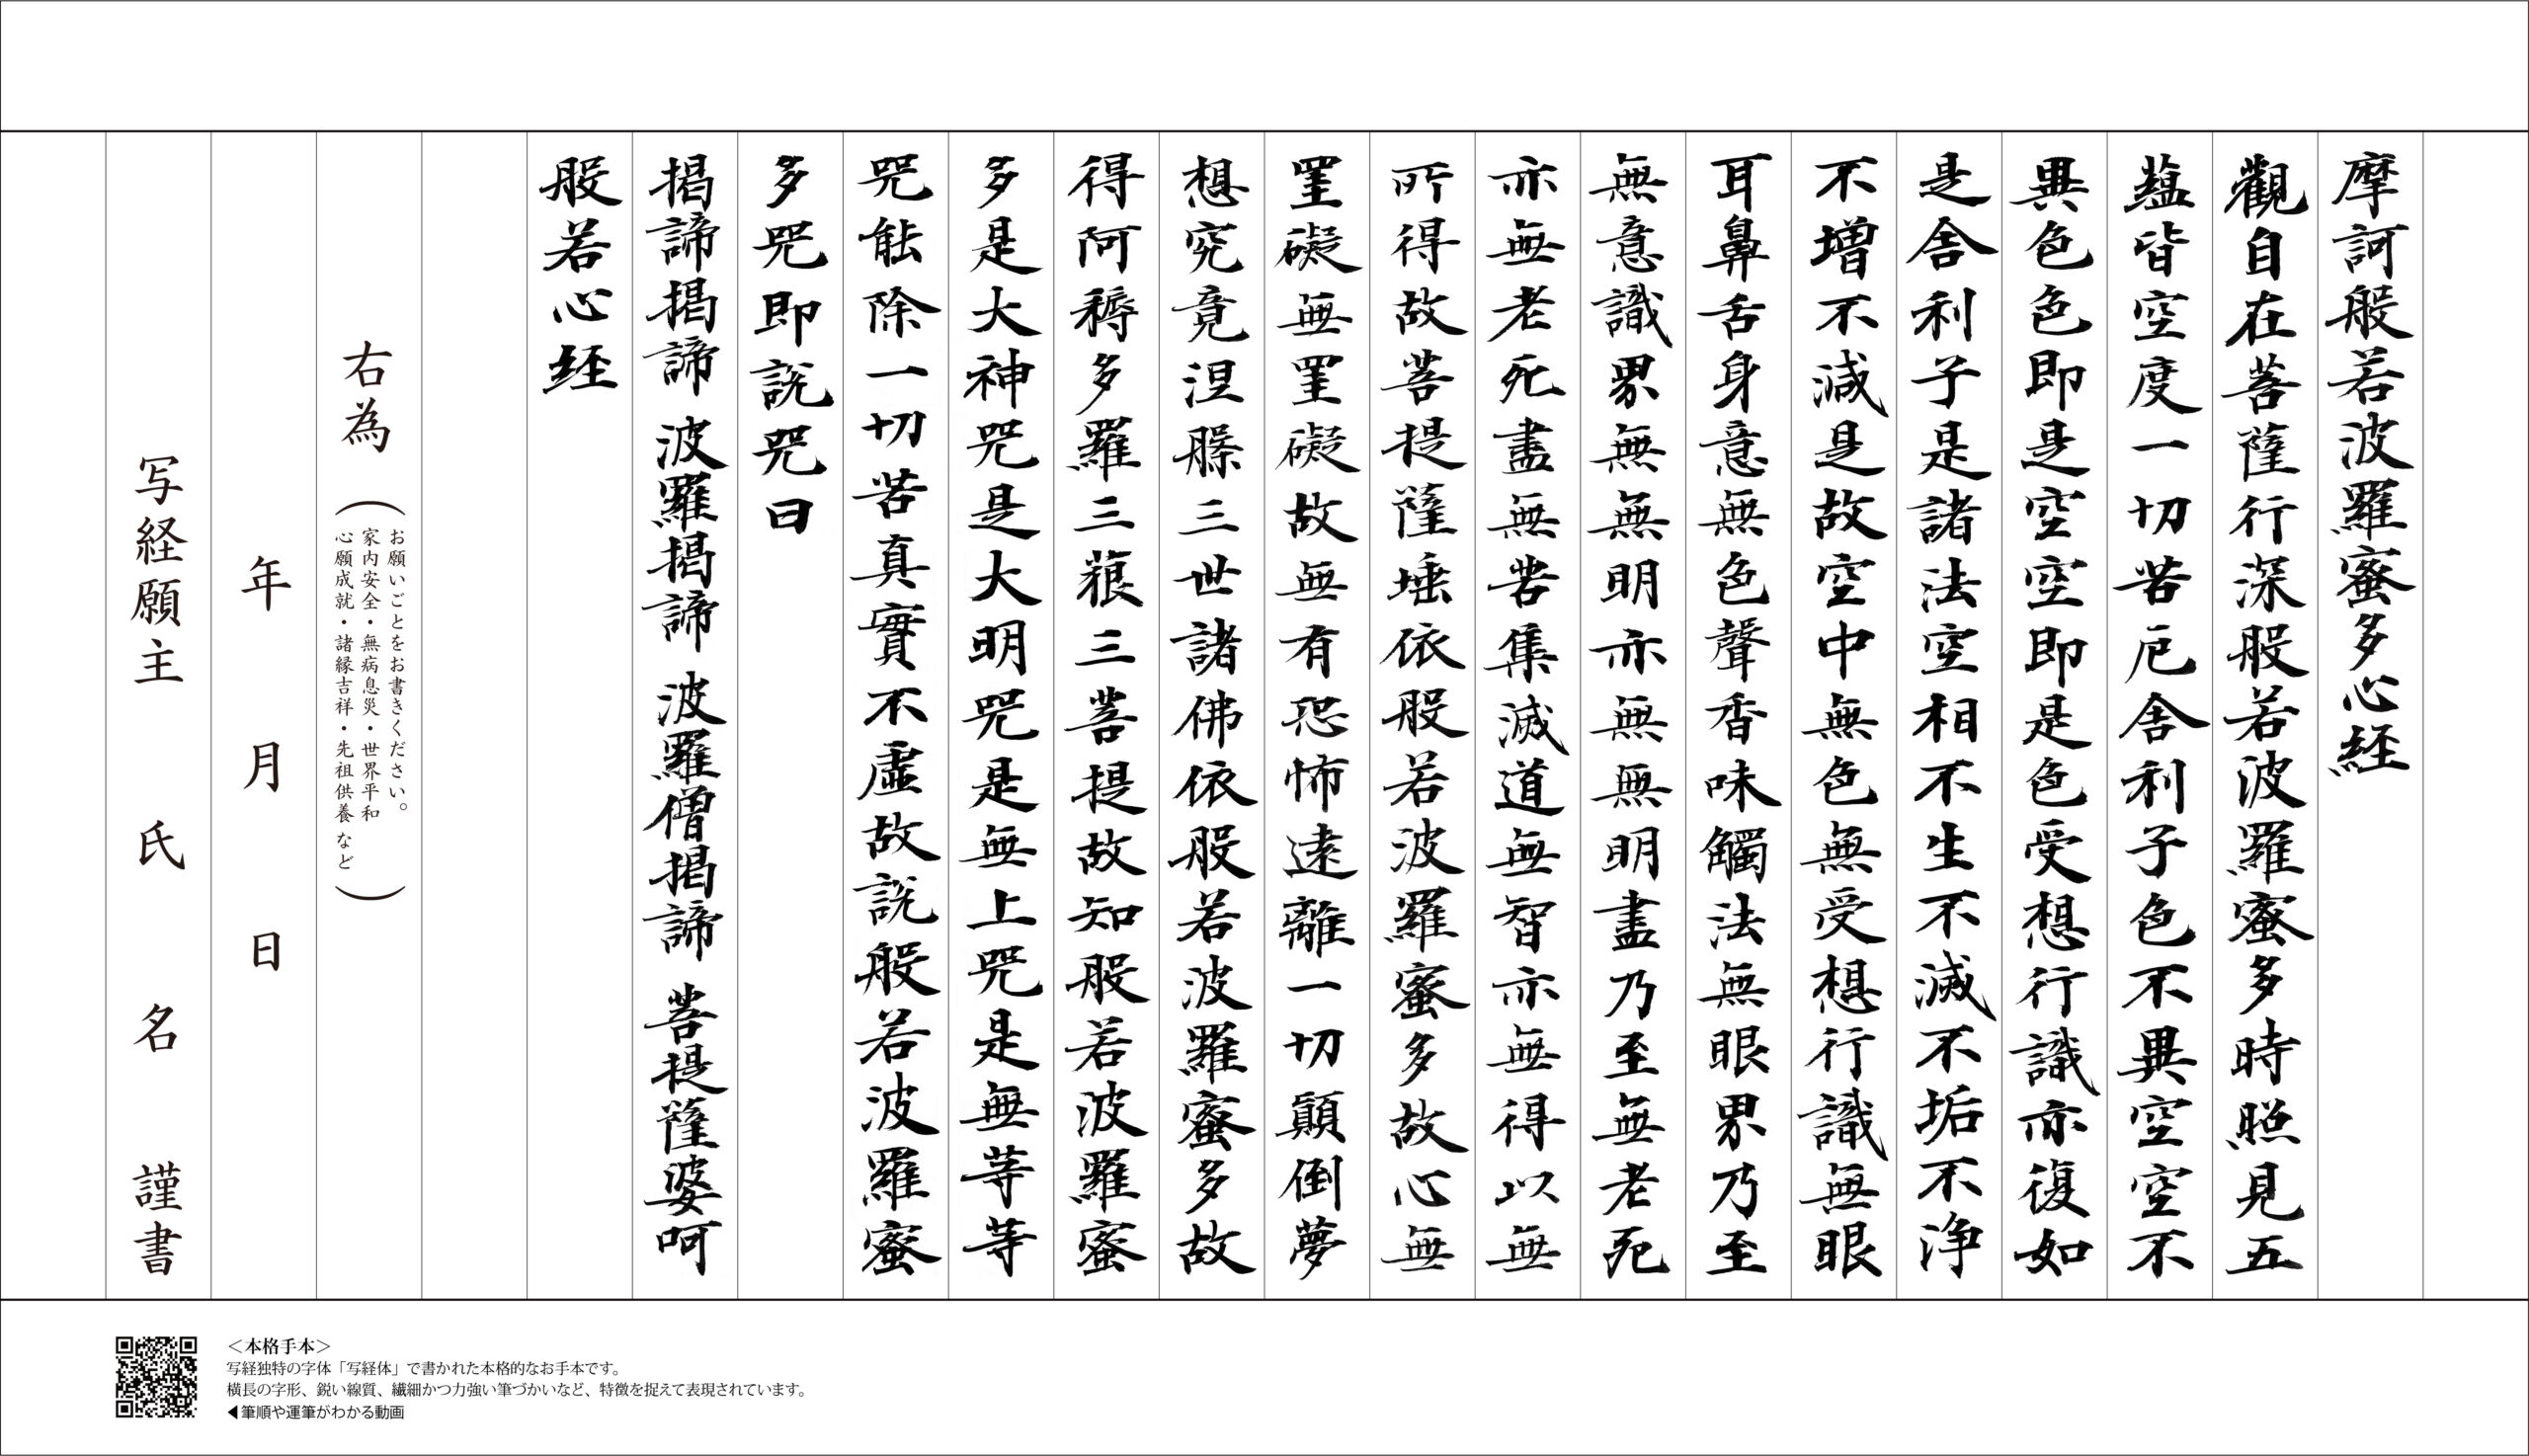 摩訶般若波羅蜜多心経
觀自在菩薩行深般若波羅蜜多時照見五
蘊皆空度一切苦厄舎利子色不異空空不
異色色即是空空即是色受想行識亦復如
是舎利子是諸法空相不生不滅不垢不浄
不増不減是故空中無色無受想行識無眼
耳鼻舌身意無色聲香味觸法無眼界乃至
無意識界無無明亦無無明盡乃至無老死
亦無老死盡無苦集滅道無智亦無得以無
所得故菩提薩埵依般若波羅蜜多故心無
罣礙無罣礙故無有恐怖遠離一切顛倒夢
想究竟涅槃三世諸佛依般若波羅蜜多故
得阿耨多羅三藐三菩提故知般若波羅蜜
多是大神咒是大明咒是無上咒是無等等
咒能除一切苦真實不虛故説般若波羅蜜
多咒即説咒曰
揭諦揭諦 波羅揭諦 波羅僧揭諦 菩提薩婆呵
般若心経
右為
お願いごとをお書きください。
家内安全・無病息災・世界平和
心願成就・諸縁吉祥・先祖供養 など
年 月 日
写経願主 氏 名 謹書
＜本格手本＞
写経独特の字体「写経体」で書かれた本格的なお手本です。
横長の字形、鋭い線質、繊細かつ力強い筆づかいなど、特徴を捉えて表現されています。
◀筆順や運筆がわかる動画